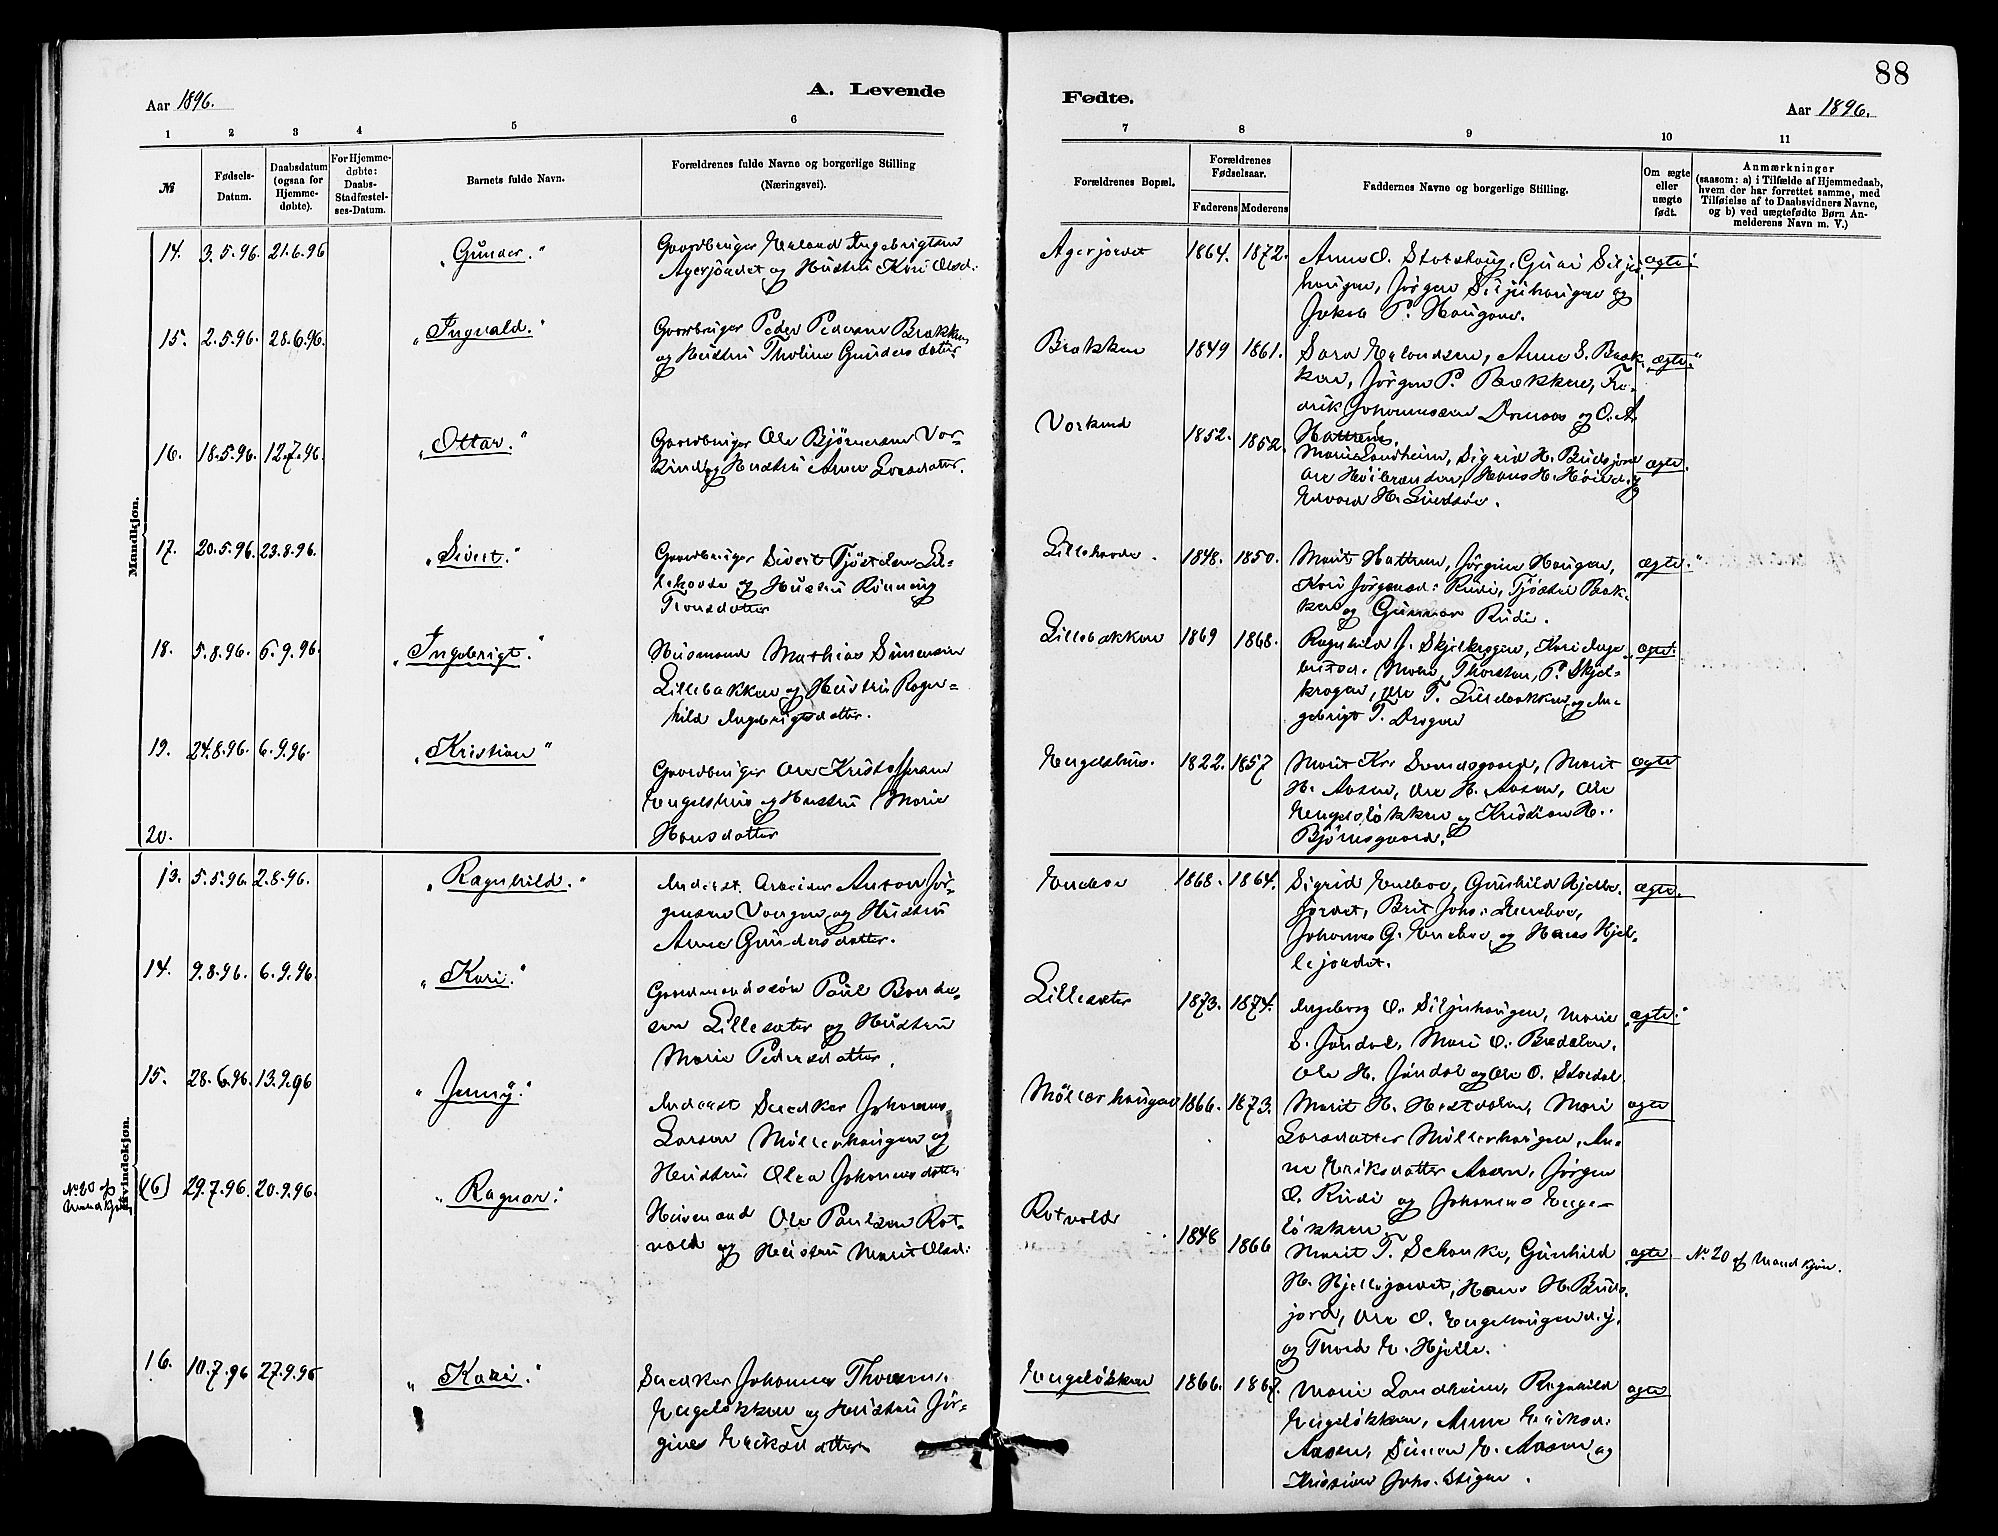 88
Aar 1896.
A. Levende
Fødte.
Aar 1896.
1 2 3 4 5 6
7 8 9 10 11
№
Fødsels-
Datum.
Daabsdatum
(ogsaa for
Hjemme-
døbte).
For Hjemme-
døbte:
Daabs-
Stadfæstel-
ses-Datum.
Barnets fulde Navn.
Forældrenes fulde Navne og borgerlige Stilling
(Næringsvei).
Forældrenes Bopæl.
Forældrenes
Fødselsaar.
Faderens Moderens
Faddernes Navne og borgerlige Stilling.
Om ægte
eller
uægte
født.
Anmærkninger
(saasom: a) i Tilfælde af Hjemmedaab,
hvem der har forrettet samme, med
Tilføielse af to Daabsvidners Navne,
og b) ved uægtefødte Børn An-
melderens Navn m. V.)
Mandkjøn.
14. 3.5.96. 21.6.96 "Gunder."
Gaardbruger Erland Ingebrigtsen
Agerjordet og Hustru Kari Olsd:
Agerjordet 1864. 1872.
Anne O. Storhaug, Guri Silju-
haugen, Jørgen Siljuhaugen og
Jakob P. Haugen.
ægte.
15. 2.5.96. 28.6.96. "Ingvald."
Gaardbruger Peder Pedersen Brækken
og Hustru Tholine Gundersdatter
Brækken 1849 1861.
Sara Erlandsen, Anne S. Bræk-
ken, Jørgen P. Brækken, Fre-
drik Johannessen og O. A.
Hattrem.
"ægte."
16. 18.5.96. 12.7.96. "Ottar."
Gaardbruger Ole Bjørnersen Vor-
kind og Hustru Anne Larsdatter.
Vorkind 1852. 1852.
Marie Landheim, Sigrid H. Budsjord
Ole Høibrænden, Hans H.
Edvard H.
ægte.
17. 20.5.96. 23.8.96. "Sivert."
Gaardbruger Sivert Tjøstelsen Lil-
lehovde og Hustru Rønnaug
Tronsdatter
Lillehovde. 1848. 1850.
Marit Hattrem, Jørgine Haugen,
Kari Jørgensd: Rudi, Tjøstel Bræk-
ken og Gunnar Rudi.
"ægte."
18. 5.8.96. 6.9.96. "Ingebrigt."
Husmand Mathias Simensen
Lillebakken og Hustru Ragn-
hild Ingebrigtsdatter.
Lillebakken 1869 1868.
Ragnhild J. Skjelkrogen, Kari Inge-
Moen, Thorsten P. Skjel-
krogen, Ole T. Lillebakken og In-
gebrigt T.
"ægte."
19. 24.8.96. 6.9.96. "Kristian"
Gaardbruger Ole Kristoffersen
Engelshus og Hustru Marie
Hansdatter
Engelshus. 1822. 1857
Marit Kr. Sandsgaard, Marit
H. Aasen, Ole H. Aasen, Ole
Engeløkken og Kristian H.
Bjørnsgaard.
ægte
20.
Kvindekjøn.
13. 5.5.96. 2.8.96. "Ragnhild."
Inderst Arbeider Anton Jør-
gensen Vangen og Hustru
Anne Gundersdatter.
Eneboe 1868. 1864.
Sigrid Eneboe, Gunhild Kjelle-
jordet, Brit Johs: Eneboe,
Johannes G. Enebo og Hans Kjel-
lejordet.
ægte.
14. 9.8.96. 6.9.96. "Kari."
Gaardmandssøn Paul
Lillesæter og Hustru
Marie Pedersdatter.
Lillesæter 1873. 1874.
Ingeborg O. Siljuhaugen, Marie
S. Jøndal, Mari O. Bredalen,
Ole H. Jøndal og Ole O. Stordal.
"ægte."
15. 28.6.96. 13.9.96 "Jenny."
Inderst Snedker Johannes
Larsen Møllerhaugen og
Hustru Olea Johannesdatter
Møllerhaugen 1866. 1873.
Marit H. Hestdalen, Mari
Larsdatter Møllerhaugen, An-
ne Eriksdatter Aasen, Jørgen
O. Rudi og Johannes Enge-
løkken.
ægte
No 20 af
Mandkjøn
(16) 29.7.96. 20.9.96. "Ragnar."
Husmand Ole Paulsen Rot-
vold og Hustru Marit Olsd:
Rotvold 1848 1866
Marit T. Schonke, Gunhild
H. Kjellejordet, Hans H. Buds-
jord, Ole O. Engehaugen d.y.
og Tord E. Hjelle.
ægte
No 20 af Mandkjøn.
16. 10.7.96 27.9.96 "Kari."
Snedker Johannes Thoresen
Engeløkken og Hustru Jør-
gine Eriksdatter
Engeløkken 1866. 1867.
Marie Landheim, Ragnhild
Engeløkken, Anne Eriksd:
Aasen, Simen E. Aasen og
Kristian Johs. Stigen.
ægte